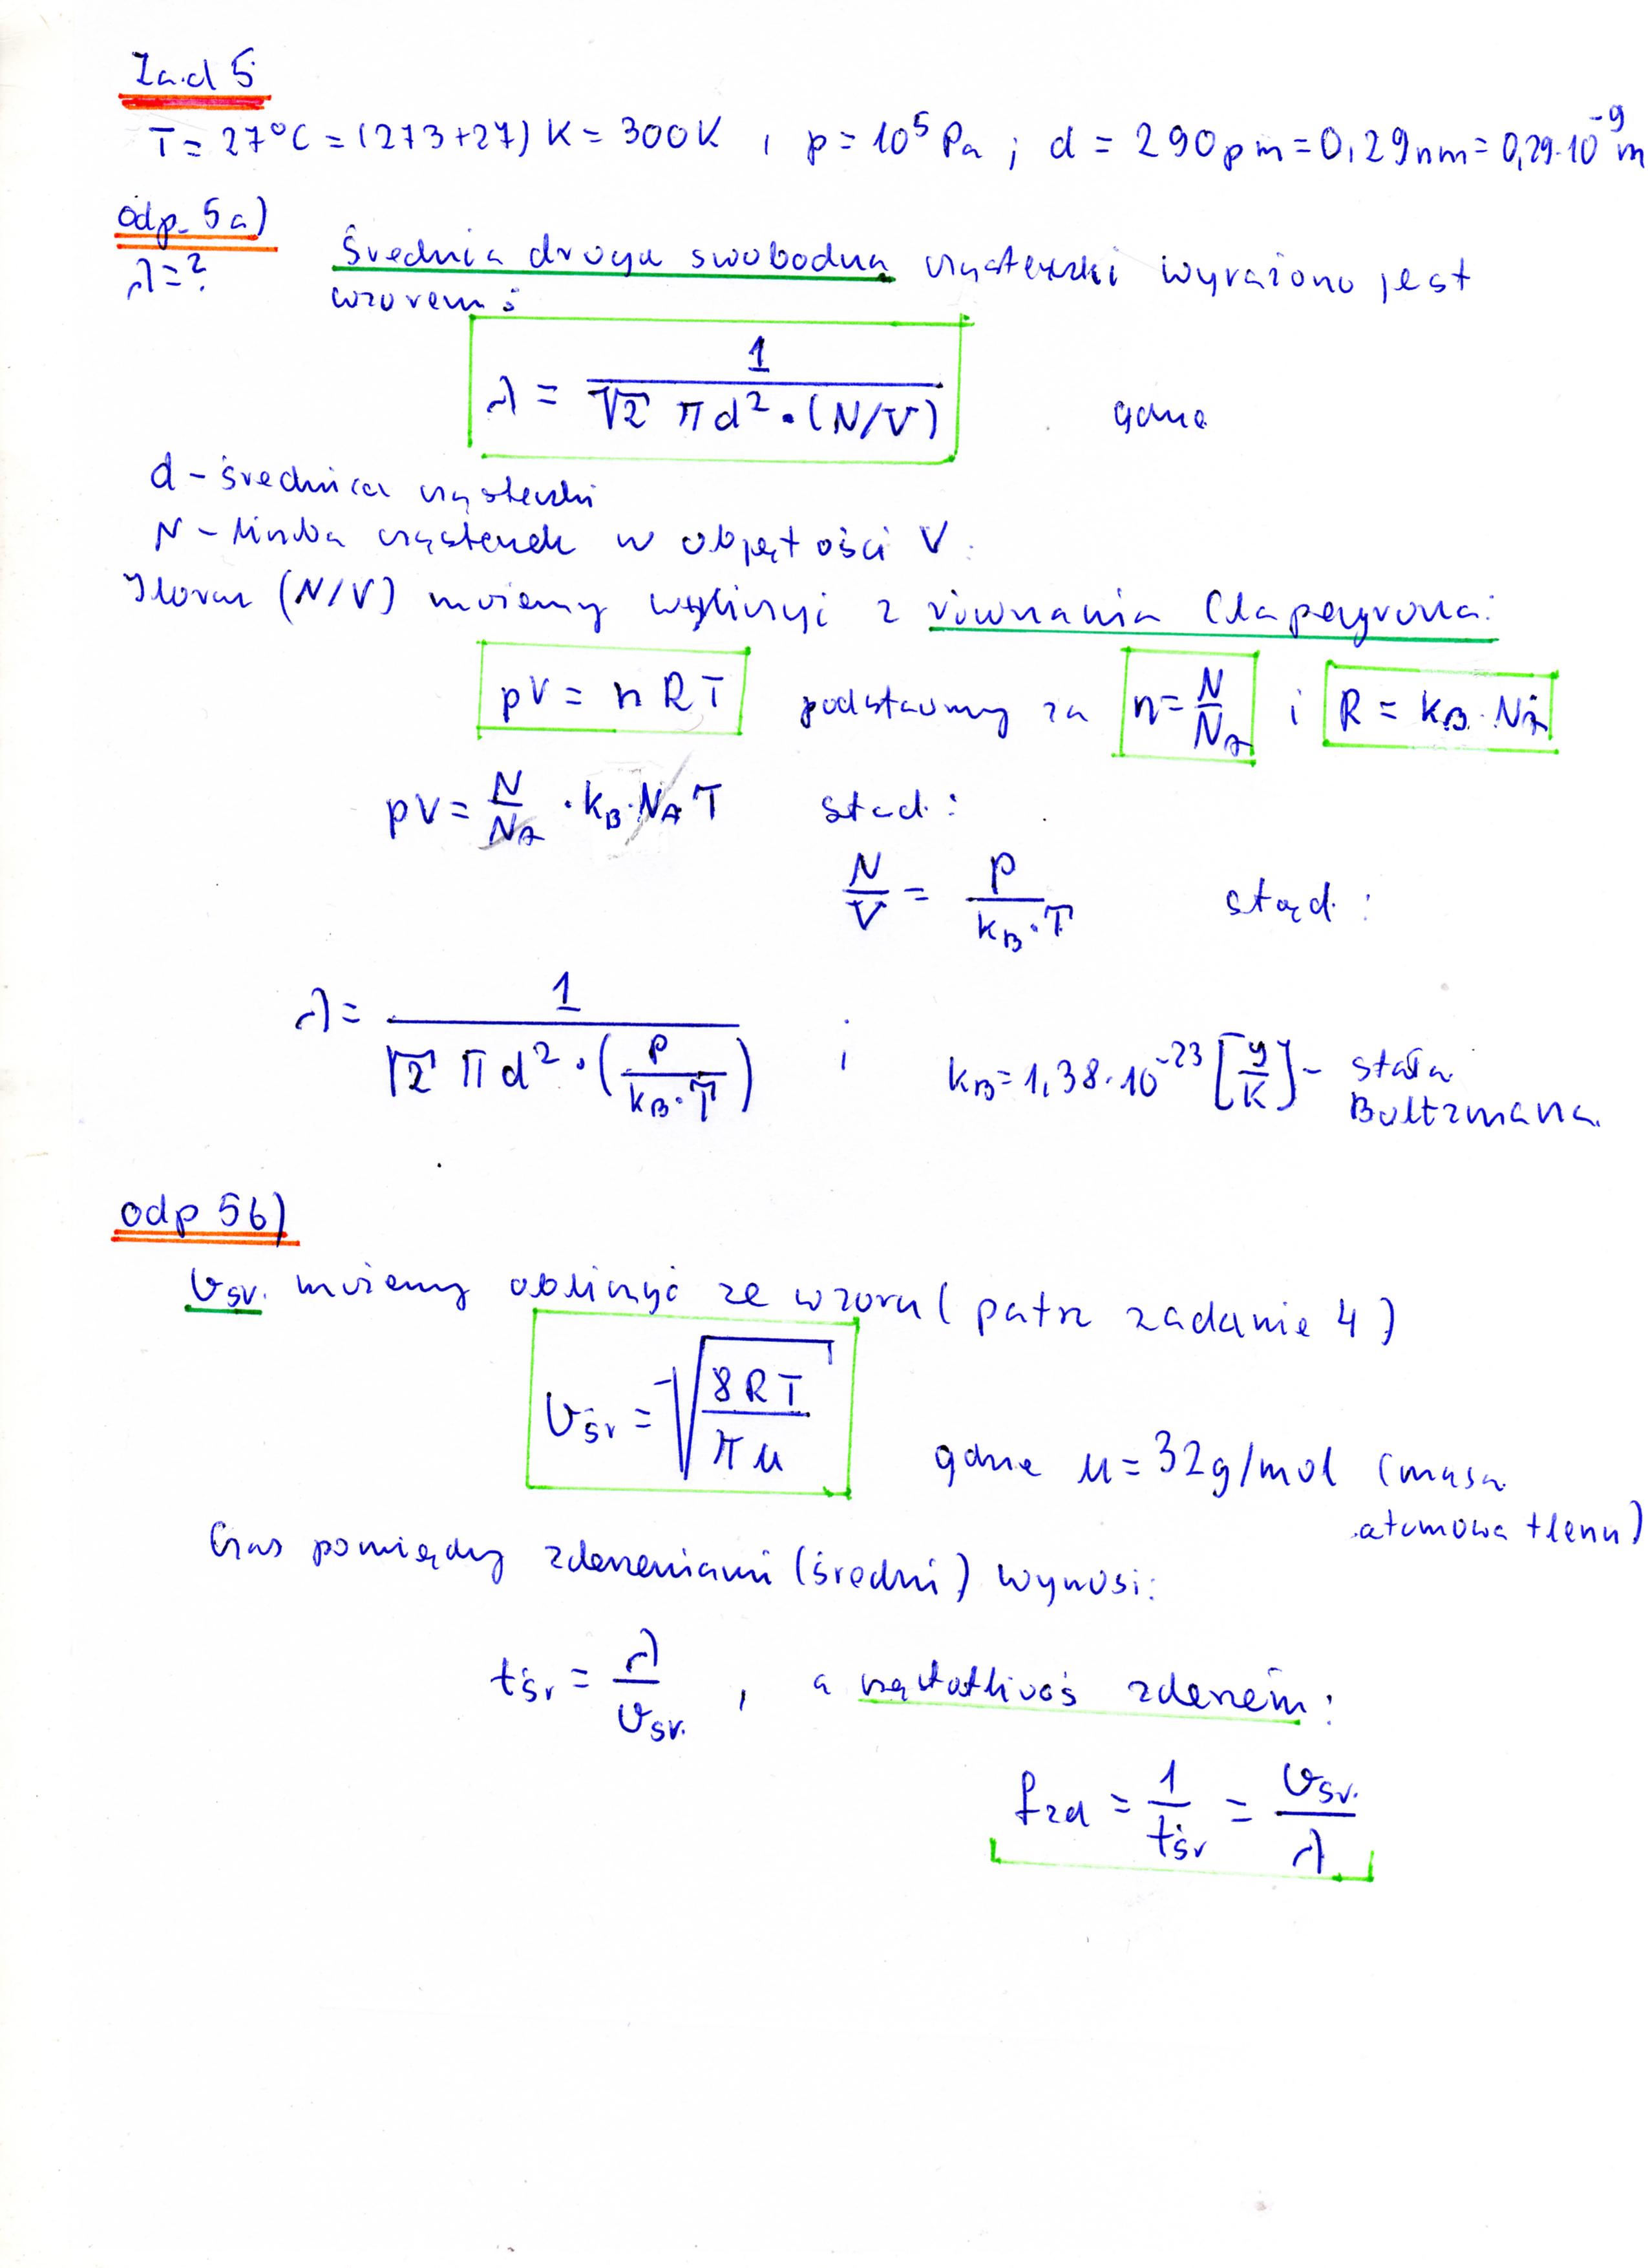 Zad 5
T = 27°C = (273+27) K = 300K , p = 10⁵ Pa ; d = 290pm = 0,29nm = 0,29·10⁻⁹ m
odp. 5a)
λ = ?
Średnia droga swobodna cząsteczki wyrażono jest
wzorem:
λ = 1 / (√2 π d² · (N/V)) gdzie
d – średnica cząsteczki
N – liczba cząsteczek w objętości V.
Iloraz (N/V) możemy wyliczyć z równania Clapeyrona:
pV = nRT podstawmy za n = N/N_A i R = k_B · N_A
pV = N/N_A · k_B · N_A T stąd:
N/V = p / (k_B · T) stąd:
λ = 1 / (√2 π d² · (p / (k_B · T))) i k_B = 1,38·10⁻²³ [J/K] – stała
Boltzmana.
odp 5b)
v_śr. możemy obliczyć ze wzoru (patrz zadanie 4)
v_śr = √(8RT / πμ)
gdzie μ = 32g/mol (masa
atomowa tlenu)
Czas pomiędzy zderzeniami (średni) wynosi:
t_śr = λ / v_śr. , a częstotliwość zderzeń:
f_zd = 1/t_śr = v_śr. / λ